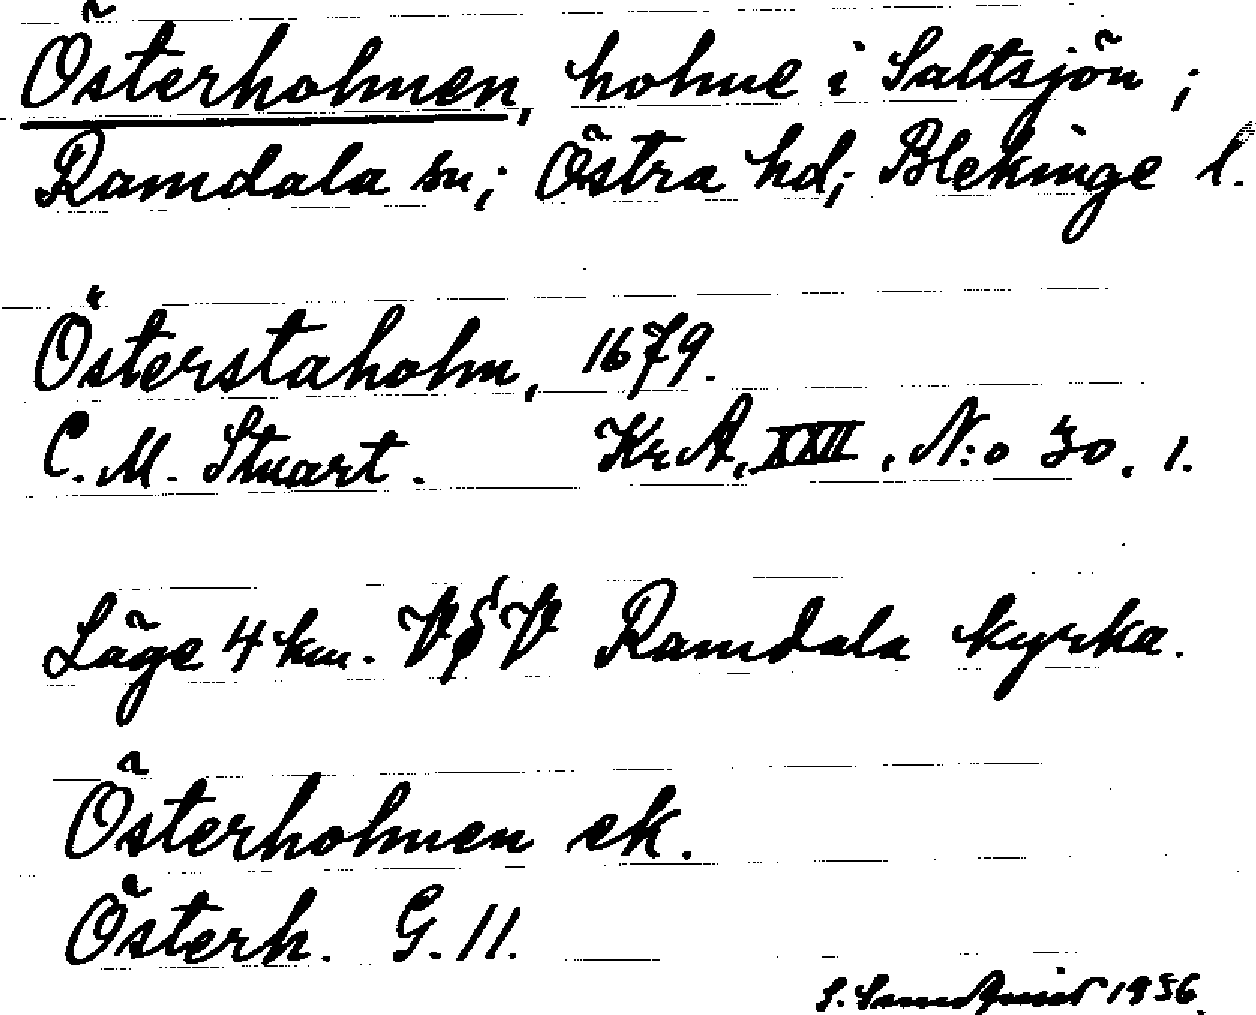 Österholmen, holme i Saltsjön;
Ramdala sn; Östra hd; Blekinge l.
Österstaholm, 1679.
C. M. Stuart. KrA, XXII, N:o 30, 1.
Läge 4 km. V§V Ramdala kyrka.
Österholmen ek.
Österh. G. 11.
S. 1956.